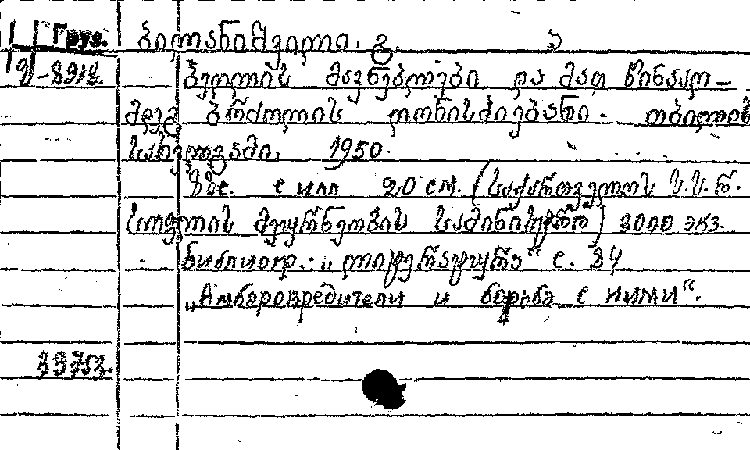 Груз.
ბილანიშვილი. გ.
ბეღლის მავნებლები და მათ წინააღ-
მდეგ ბრძოლის ღონისძიებანი. თბილისი
სახელგამი, 1950.
с илл 20 см. (საქართველოს ს.ს.რ.
სოფლის მეურნეობის სამინისტრო) 3000 экз.
Библиогр.: „ლიტერატურა“ с. 34
„Амбаровредители и борьба с ними“.